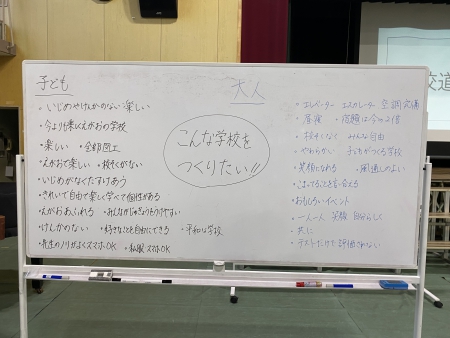 子ども
・いじめやけんかのない楽しい
・今より1楽しくえがおの学校
・楽しい ・全部図工
・えがおで楽しい ・校そくがない
・いじめがなくたすけあう
・きれいで自由で楽しく学べて個性がある
・えがおあふれる ・みんながじゅぎょうをうけやすい
・けんかのない ・好きなことを自由にできる ・平和な学校
・先生のノリがよくスマホOK ・私服 スマホOK
こんな学校を
つくりたい!!
大人
・エレベーター エスカレーター 空調完備
・昼寝 ・宿題は今の2倍
・校そくなく みんな自由
・やわらかい 子どもがつくる学校
・笑顔になれる ・風通しのよい
・こまってることを言い合える
・おもしろいイベント
・一人一人 笑顔 自分らしく
・共に
・テストだけで評価されない
校道